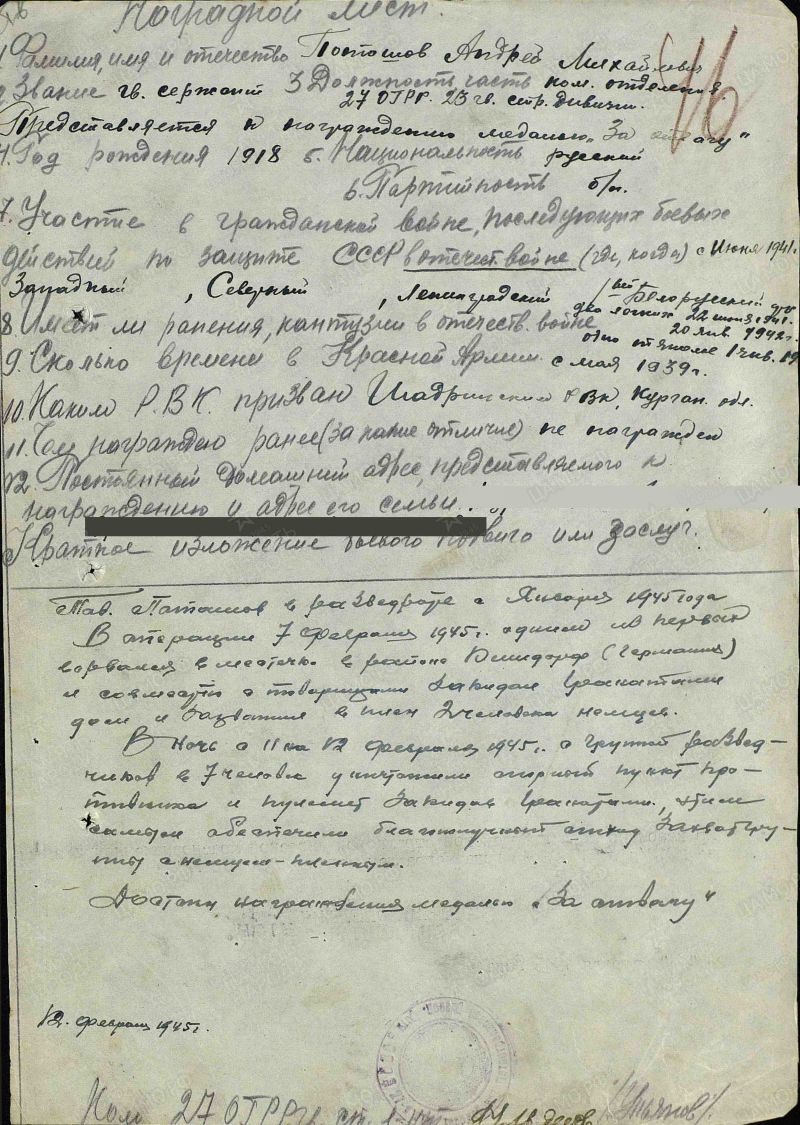 Наградной лист.
1. Фамилия, имя и отчество Поташов Андрей Михайлович
2. Звание гв. сержант 3 Должность, часть ком. отделения
27 ОГРР. 23 гв. стр. дивизии.
Представляется к награждению медалью „За отвагу"
4. Год рождения 1918 5. Национальность русский
6. Партийность б/п.
7. Участие в гражданской войне, последующих боевых
действий по защите СССР в отечест. войне (где, когда) с Июня 1941г.
Западный, Северный, Ленинградский, Белорусский
8. Имеет ли ранения, контузии в отечеств. войне два легких 22 июня 1941г.
20 янв. 1942г.
одно
9. Сколько времени в Красной Армии с мая 1939г.
10. Каким Р.В.К. призван Шадринским РВК, Курган. обл.
11. Чем награжден ранее (за какие отличие) не награжден
12. Постоянный домашний адрес, представляемого к
награждению и адрес его семьи.
Краткое изложение боевого подвига или заслуг.
Тов. Поташов в разведроте с Января 1945 года
В операции 7 февраля 1945г. одним из первых
ворвался в местечко в районе (Германия)
и совместно с товарищами закидал гранатами
дом и захватил в плен 2 человека немцев.
В ночь с 11 на 12 февраля 1945г. с группой развед-
чиков в 7 человек уничтожили опорный пункт про-
тивника и пулемет закидав гранатами, этим
самым обеспечили благополучный отход захватгру-
ппы с немцем-пленным.
Достоин награждения медалью „За отвагу"
12. февраля 1945г.
Ком 27 ОГРР гв. ст. л-нт /Ульянов/.